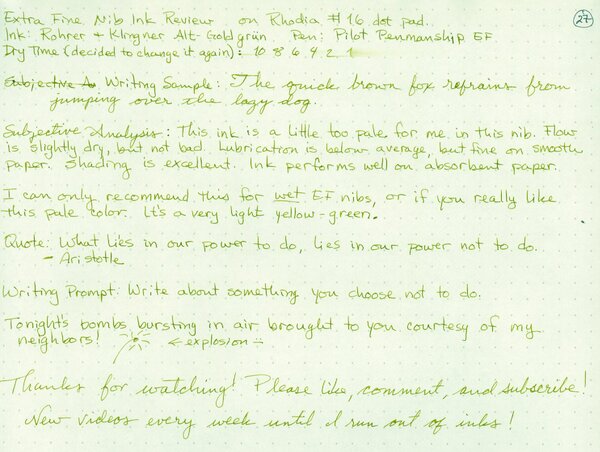 Extra Fine Nib Ink Review on Rhodia #16 dot pad.
27
Ink: Rohrer + Klingner Alt-Goldgrün Pen: Pilot Penmanship EF
Dry Time (decided to change it again): 10 8 6 4 2 1
Subjective A Writing Sample: The quick brown fox refrains from
jumping over the lazy dog.
Subjective Analysis: This ink is a little too pale for me in this nib. Flow
is slightly dry, but not bad. Lubrication is below average, but fine on smooth
paper. Shading is excellent. Ink performs well on absorbent paper.
I can only recommend this for wet EF nibs, or if you really like
this pale color. It's a very light yellow-green.
Quote: What lies in our power to do, lies in our power not to do.
- Aristotle
Writing Prompt: Write about something you choose not to do.
Tonight's bombs bursting in air brought to you courtesy of my
neighbors! ← explosion
Thanks for watching! Please like, comment, and subscribe!
New videos every week until I run out of inks!